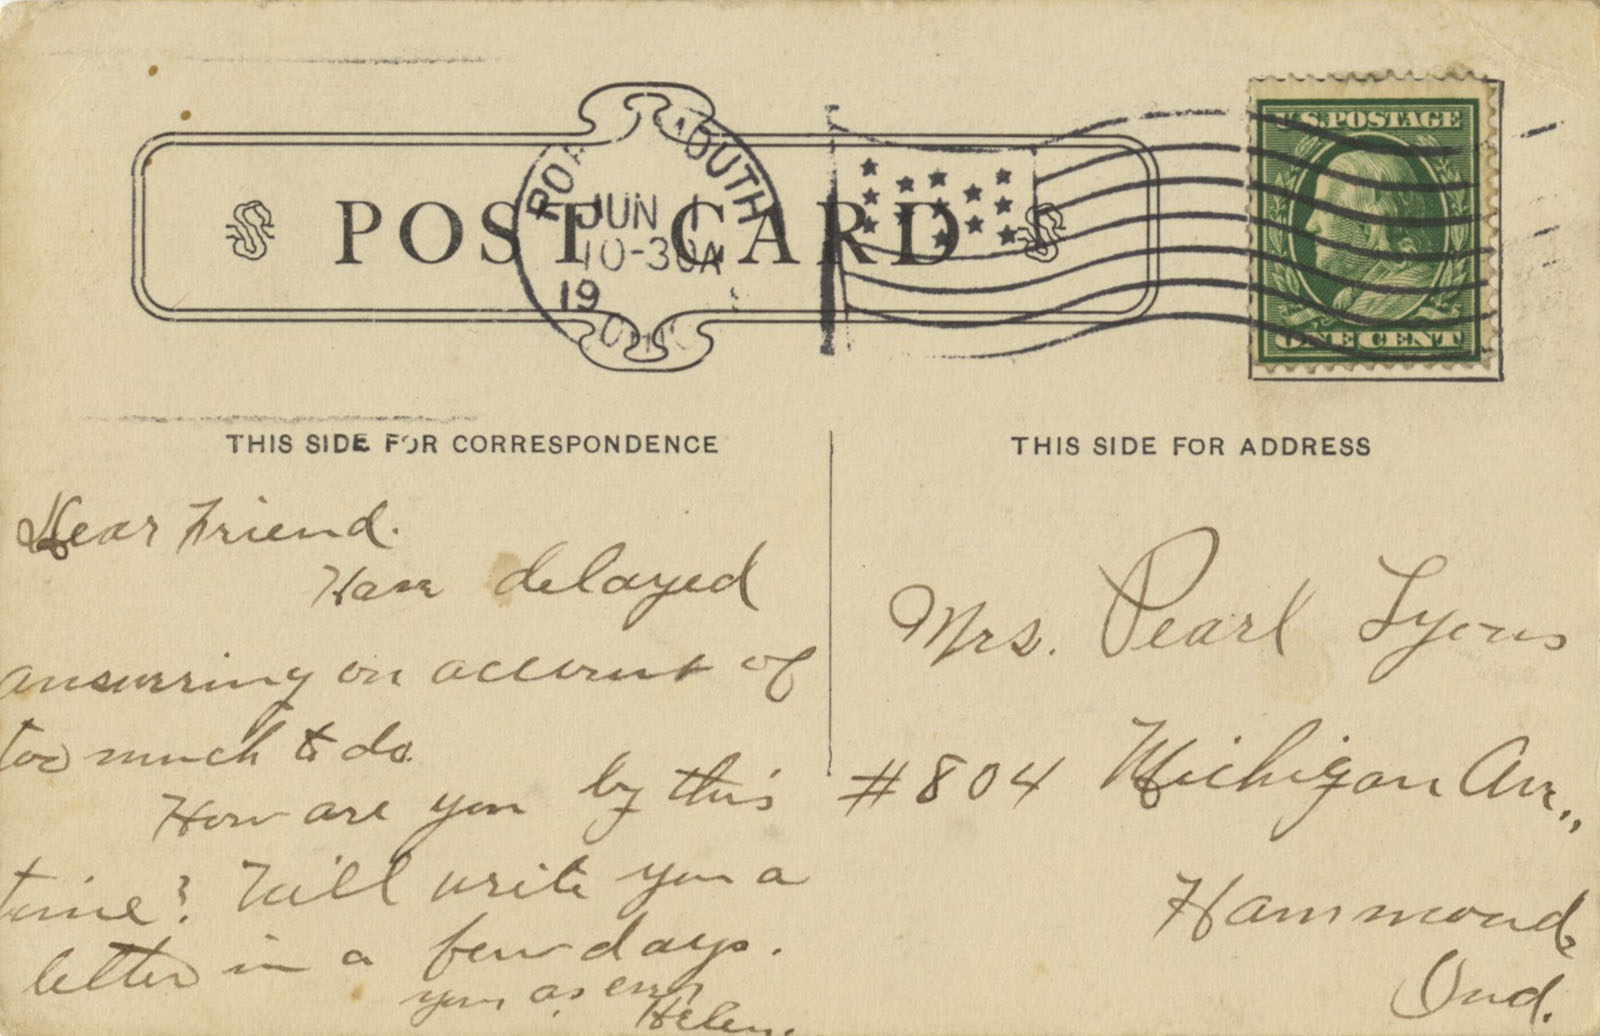 POST CARD
JUN 1
10-30A
19
OHIO
U.S. POSTAGE
ONE CENT
THIS SIDE FOR CORRESPONDENCE
THIS SIDE FOR ADDRESS
Dear Friend.
Have delayed
answering on account of
too much to do.
How are you by this
time? Will write you a
letter in a few days.
your as ever
Helen.
Mrs. Pearl Lyons
#804 Michigan Av.,
Hammond,
Ind.